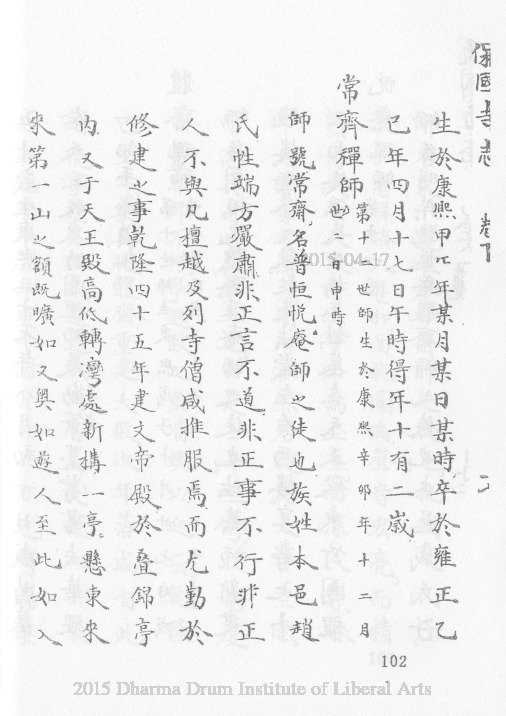 保國寺志 卷下
生於康熙甲□年某月某日某時卒於雍正乙
巳年四月十七日午時得年十有二歲
常齊禪師 第十一世師生於康熙辛卯年十二月
日申時
師號常齋名普恒悅菴師之徒也族姓本邑趙
氏性端方嚴肅非正言不道非正事不行非正
人不與凡檀越及列寺僧咸推服焉而尤勤於
修建之事乾隆四十五年建文帝殿於疊錦亭
內又于天王殿高低轉灣處新搆一亭懸東來
來第一山之額既曠如又奧如遊人至此如入
102
2015-04-17
2015 Dharma Drum Institute of Liberal Arts